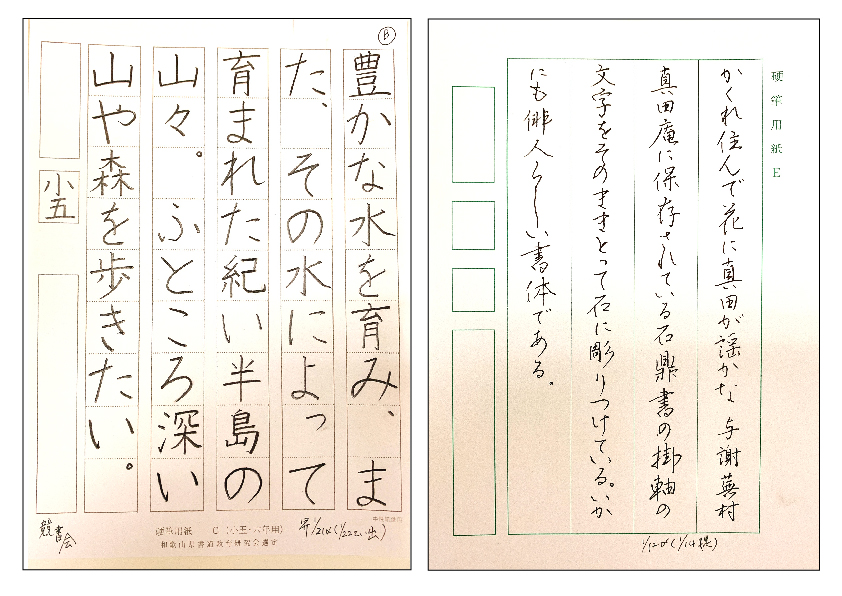 B
豊かな水を育み、ま
た、その水によって
育まれた紀い半島の
山々。ふところ深い
山や森を歩きたい。
小五
競書会
硬筆用紙 C(小五・六年用)
和歌山県書道教育研究会選定
硬筆用紙E
かくれ住んで花に真田が謡かな 与謝蕪村
真田庵に保存されている石鼎書の掛軸の
文字をそのままとって石に彫りつけている。いか
にも俳人らしい書体である。